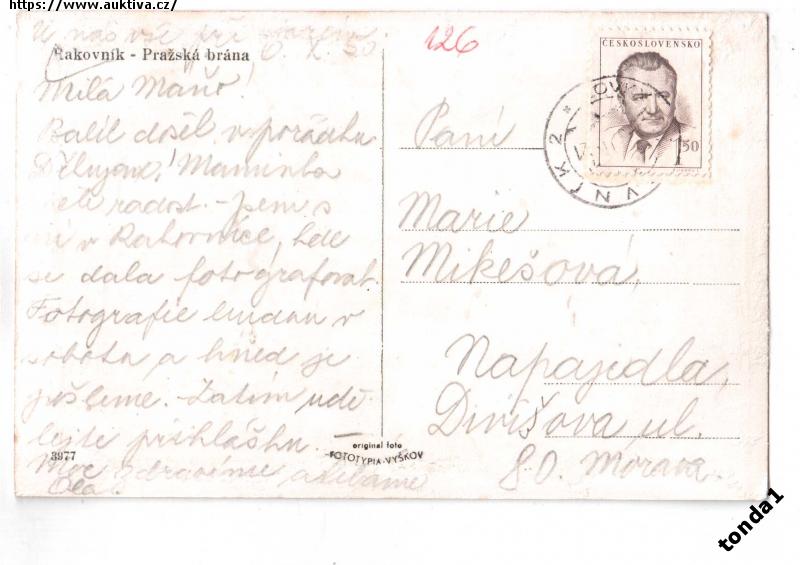 https://www.auktiva.cz/
U nás vše při starém
Rakovník - Pražská brána
6. X. 50
126
Milá Máňo!
Balíl došel v pořádku
Děkujeme! Maminka
radost. - Jsem s
ní v Rakovníce, kde
se dala fotografovat.
Fotografie budou v
sobotu a hned je
pošleme. Zatím udě-
lejte přihlášku. -
Moc zdravíme a líbáme
3977
original foto
FOTOTYPIA-VYŠKOV
ČESKOSLOVENSKO
1.50
VNÍK 2
Paní
Marie
Mikešová,
Napajedla,
Divišova ul.
80. Morava.
tonda1